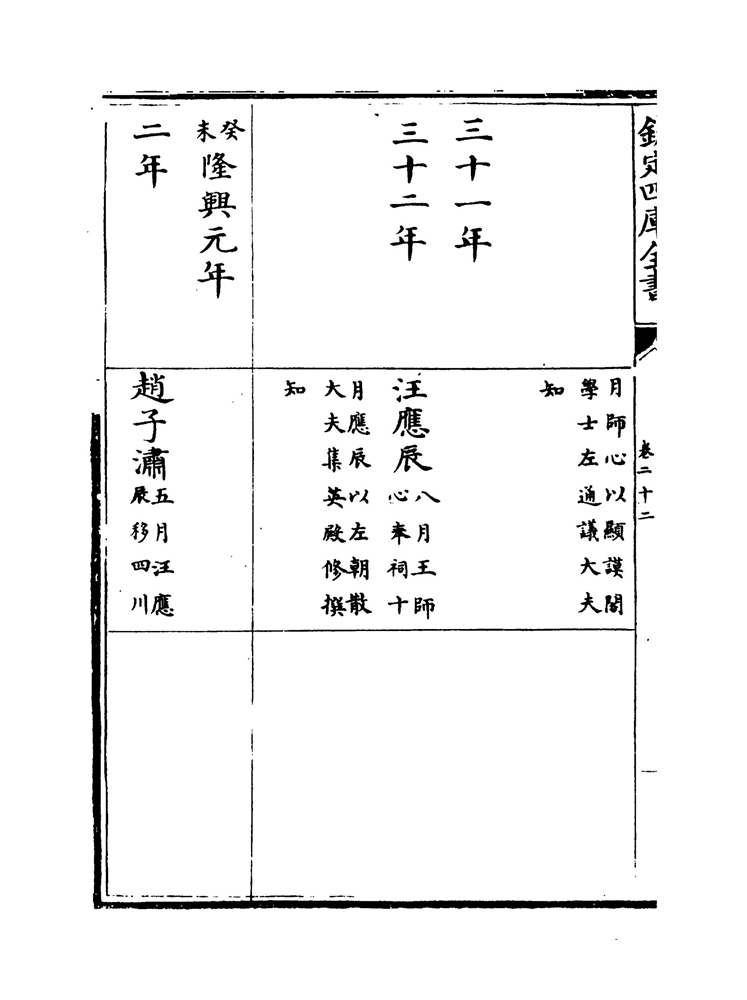 欽定四庫全書
卷二十二
三十一年
月師心以顯謨閣
學士左通議大夫
知
三十二年
汪應辰
八月王師
心奉祠十
月應辰以左朝散
大夫集英殿修撰
知
癸未
隆興元年
二年
趙子潚
五月汪應
辰移四川